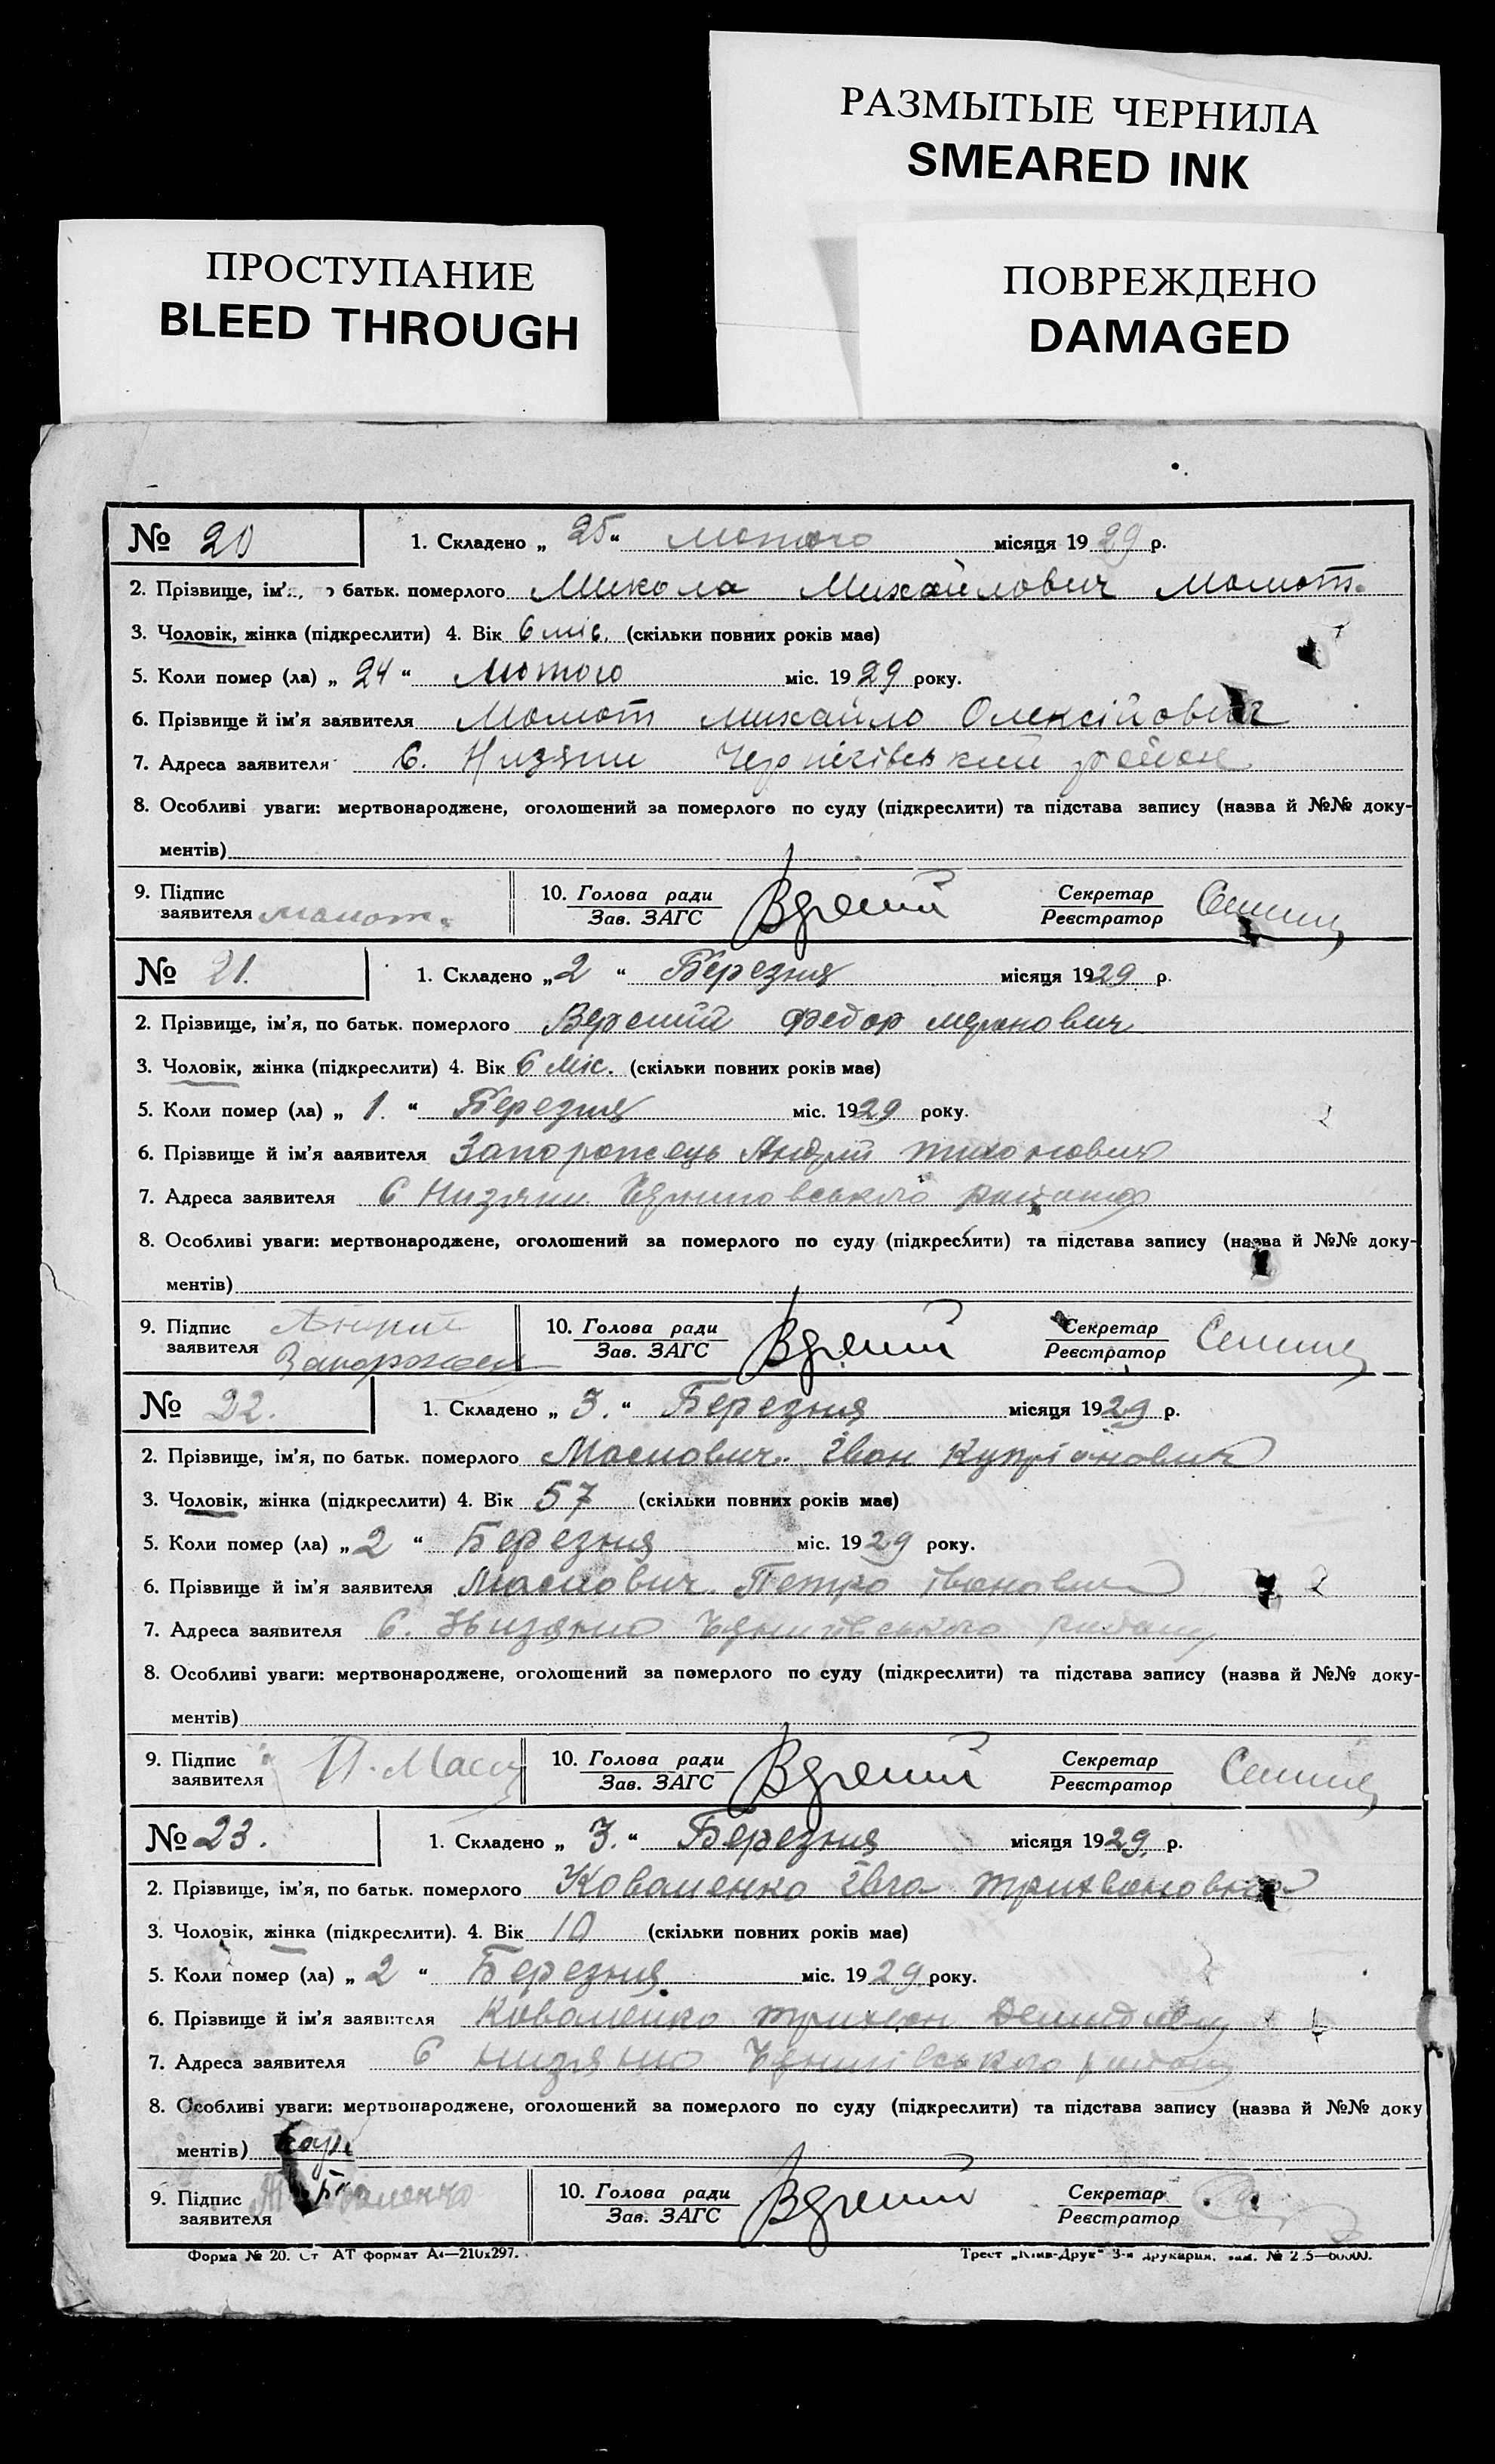 РАЗМЫТЫЕ ЧЕРНИЛА
SMEARED INK
ПРОСТУПАНИЕ
BLEED THROUGH
ПОВРЕЖДЕНО
DAMAGED
№ 20
1. Складено „ 25 “ лютого місяця 1929 р.
2. Прізвище, ім'я, по батьк. померлого Микола Михайлович Момот.
3. Чоловік, жінка (підкреслити) 4. Вік 6 міс. (скільки повних років має)
5. Коли помер (ла) „ 24 “ Лютого міс. 1929 року.
6. Прізвище й ім'я заявителя Момот михайло Олексійович
7. Адреса заявителя С. Низяни район
8. Особливі уваги: мертвонароджене, оголошений за померлого по суду (підкреслити) та підстава запису (назва й №№ доку-
ментів)
9. Підпис заявителя момот.
10. Голова ради
Зав. ЗАГС
Секретар
Реєстратор
№ 21.
1. Складено „ 2 “ Березня місяця 1929 р.
2. Прізвище, ім'я, по батьк. померлого Федор
3. Чоловік, жінка (підкреслити) 4. Вік 6 міс. (скільки повних років має)
5. Коли помер (ла) „ 1. “ Березня міс. 1929 року.
6. Прізвище й ім'я заявителя Запорожець Андрій тихонович
7. Адреса заявителя С Низяни
8. Особливі уваги: мертвонароджене, оголошений за померлого по суду (підкреслити) та підстава запису (назва й №№ доку-
ментів)
9. Підпис заявителя Андрий
Запорожец
10. Голова ради
Зав. ЗАГС
Секретар
Реєстратор
№ 22.
1. Складено „ 3. “ Березня місяця 1929 р.
2. Прізвище, ім'я, по батьк. померлого Іван Купріянович
3. Чоловік, жінка (підкреслити) 4. Вік 57 (скільки повних років має)
5. Коли помер (ла) „ 2 “ Березня міс. 1929 року.
6. Прізвище й ім'я заявителя Петро Іванович
7. Адреса заявителя С.
8. Особливі уваги: мертвонароджене, оголошений за померлого по суду (підкреслити) та підстава запису (назва й №№ доку-
ментів)
9. Підпис заявителя П.
10. Голова ради
Зав. ЗАГС
Секретар
Реєстратор
№ 23.
1. Складено „ 3. “ Березня місяця 1929. р.
2. Прізвище, ім'я, по батьк. померлого Коваленко Євга
3. Чоловік, жінка (підкреслити). 4. Вік 10 (скільки повних років має)
5. Коли помер (ла) „ 2 “ Березня міс. 1929 року.
6. Прізвище й ім'я заявителя Коваленко
7. Адреса заявителя С
8. Особливі уваги: мертвонароджене, оголошений за померлого по суду (підкреслити) та підстава запису (назва й №№ доку
ментів)
9. Підпис заявителя
10. Голова ради
Зав. ЗАГС
Секретар
Реєстратор
Форма № 20. Ст АТ формат А4—210х297.
Трест „Київ-Друк“ 3-я друкарня.